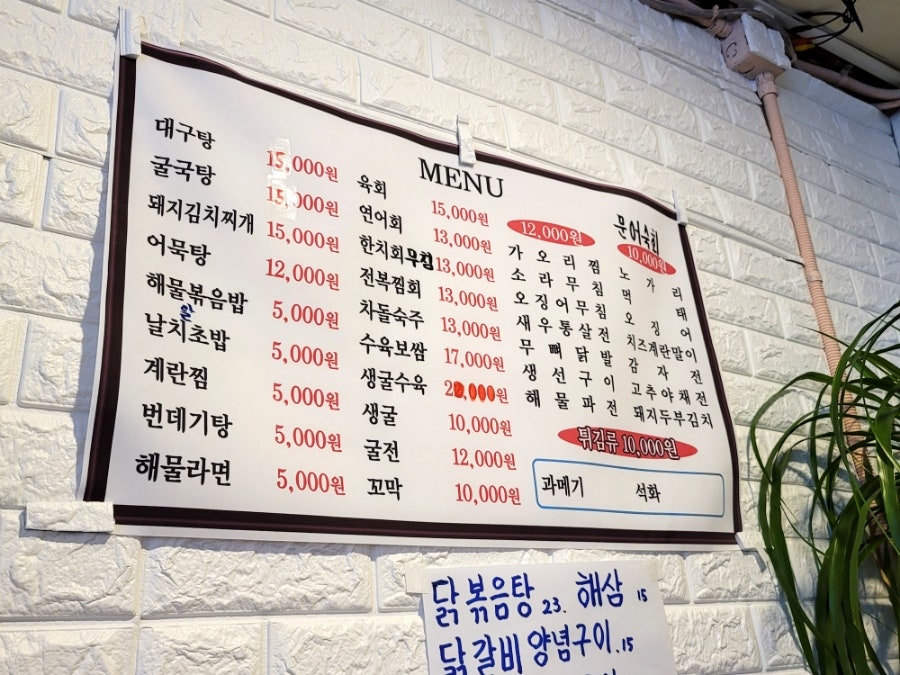 MENU
대구탕 15,000원
굴국탕 15,000원
돼지김치찌개 15,000원
어묵탕 12,000원
해물볶음밥 5,000원
날치알초밥 5,000원
계란찜 5,000원
번데기탕 5,000원
해물라면 5,000원
육회 15,000원
연어회 13,000원
한치회무침 13,000원
전복찜회 13,000원
차돌숙주 13,000원
수육보쌈 17,000원
생굴수육 20,000원
생굴 10,000원
굴전 12,000원
꼬막 10,000원
12,000원
가오리찜
소라무침
오징어무침
새우통살전
무뼈닭발
생선구이
해물파전
문어숙회
10,000원
노가리
먹태
오징어
치즈계란말이
감자전
고추야채전
돼지두부김치
튀김류 10,000원
과메기 석화
닭볶음탕 23. 해삼 15
닭갈비양념구이.15